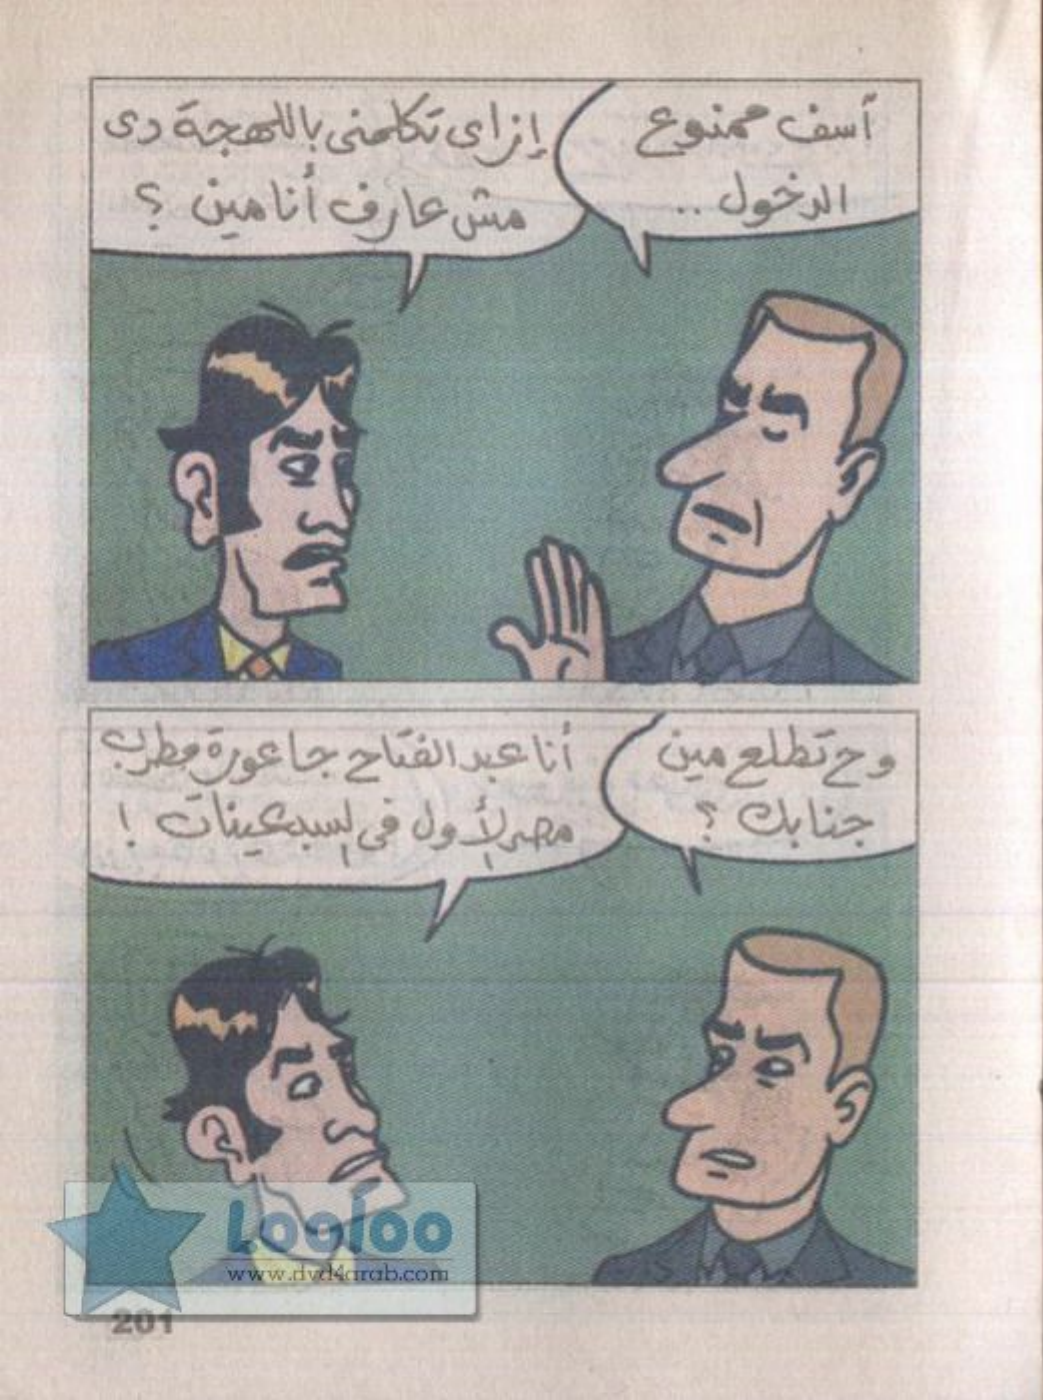 آسف ممنوع
الدخول ..
إزاى تكلمنى باللهجة دى
مش عارف أنا مين ؟
وح تطلع مين
جنابك ؟
أنا عبد الفتاح جاعورة مطرب
مصر الأول فى السبعينات !
Looloo
www.dvd4arab.com
201